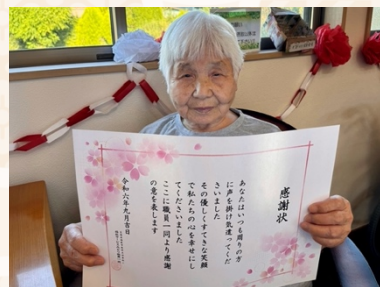 感謝状
あなたはいつも周りの方
に声を掛け気遣ってくだ
さいました
その優しくすてきな笑顔
で私たちの心を幸せにし
てくださいました
ここに職員一同より感謝
の意を表します
令和六年九月吉日